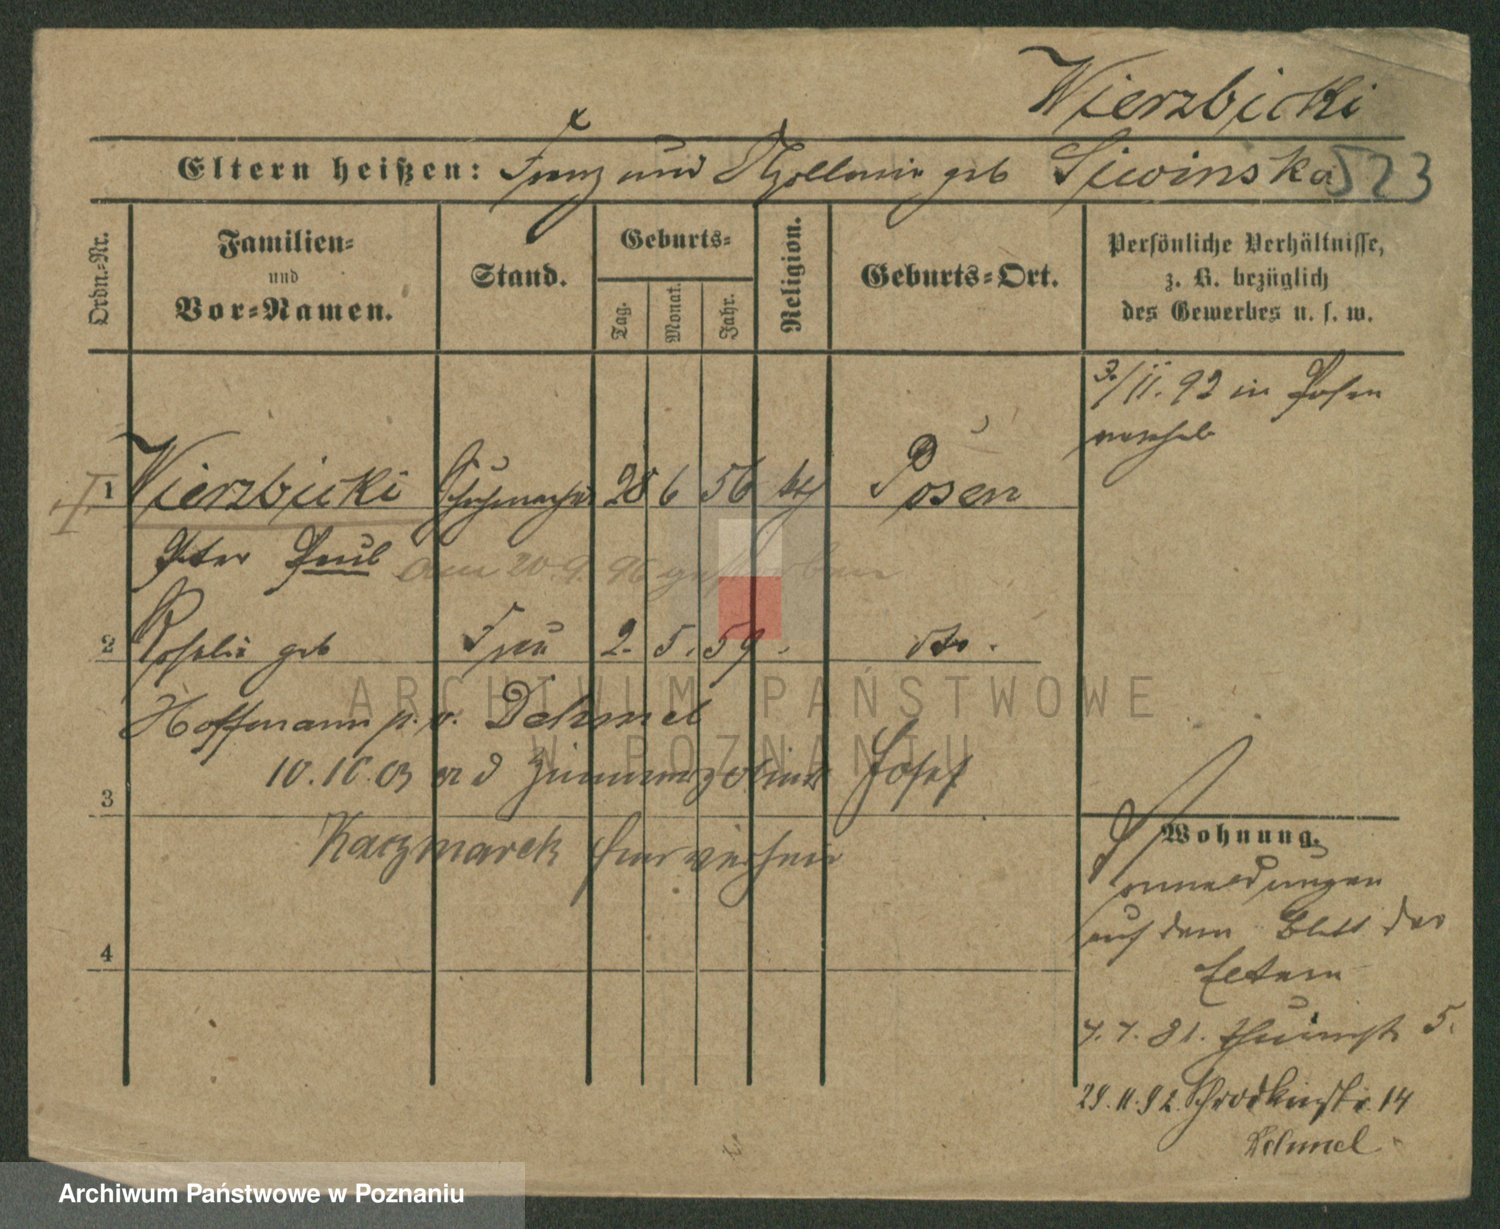 Wierzbicki
Eltern heißen: Franz und Apollonia geb Siwinska 523
Ordn.-Nr.
Familien-
und
Vor-Namen.
Stand.
Geburts-
Tag.
Monat.
Jahr.
Religion.
Geburts-Ort.
Persönliche Verhältnisse,
z. B. bezüglich
des Gewerbes u. s. w.
3/11. 92 in Posen
1 Wierzbicki Schuhmacher 28 6 56 kth Posen
Peter Paul am 20.9.96 gestorben
2 Rosalie geb Frau 2. 5. 59. dto.
Hoffmann p. v. Dehmel
10.10.03 Josef
3
Kaczmarek
4
Wohnung.
Anmeldungen
auf dem Blatt der
Eltern
7.7.81. 5.
29.11.92. 14
Dehmel
ARCHIWUM PAŃSTWOWE
W POZNANIU
Archiwum Państwowe w Poznaniu